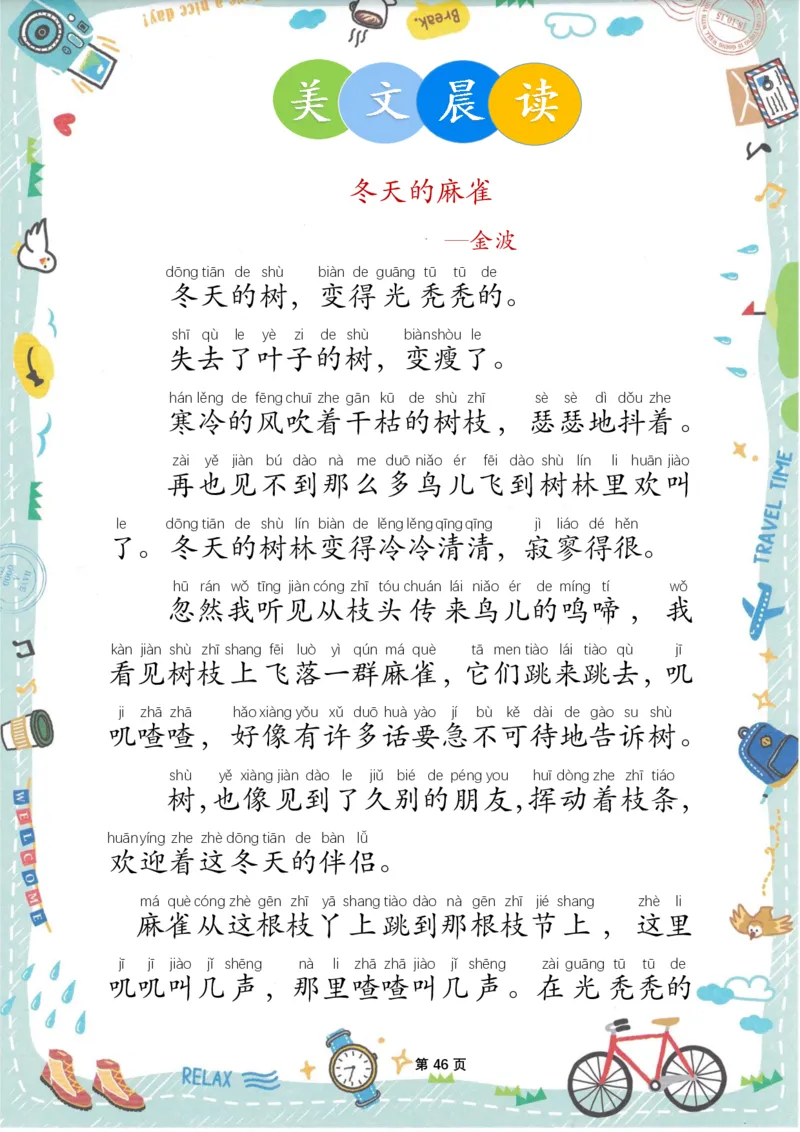 Have a nice day!
Break.
18.10.15
美文晨读
冬天的麻雀
—金波
dōng tiān de shù biàn de guāng tū tū de
冬天的树，变得光秃秃的。
shī qù le yè zi de shù biàn shòu le
失去了叶子的树，变瘦了。
hán lěng de fēng chuī zhe gān kū de shù zhī sè sè dì dǒu zhe
寒冷的风吹着干枯的树枝，瑟瑟地抖着。
zài yě jiàn bú dào nà me duō niǎo ér fēi dào shù lín li huān jiào
再也见不到那么多鸟儿飞到树林里欢叫
le dōng tiān de shù lín biàn de lěng lěng qīng qīng jì liáo dé hěn
了。冬天的树林变得冷冷清清，寂寥得很。
hū rán wǒ tīng jiàn cóng zhī tóu chuán lái niǎo ér de míng tí wǒ
忽然我听见从枝头传来鸟儿的鸣啼，我
kàn jiàn shù zhī shang fēi luò yì qún má què tā men tiào lái tiào qù jī
看见树枝上飞落一群麻雀，它们跳来跳去，叽
ji zhā zhā hǎo xiàng yǒu xǔ duō huà yào jí bù kě dài de gào su shù
叽喳喳，好像有许多话要急不可待地告诉树。
shù yě xiàng jiàn dào le jiǔ bié de péng you huī dòng zhe zhī tiáo
树，也像见到了久别的朋友，挥动着枝条，
huān yíng zhe zhè dōng tiān de bàn lǚ
欢迎着这冬天的伴侣。
má què cóng zhè gēn zhī yā shang tiào dào nà gēn zhī jié shang zhè li
麻雀从这根枝丫上跳到那根枝节上，这里
jī jī jiào jǐ shēng nà li zhā zhā jiào jǐ shēng zài guāng tū tū de
叽叽叫几声，那里喳喳叫几声。在光秃秃的
TRAVEL TIME
WELCOME
RELAX
第 46 页